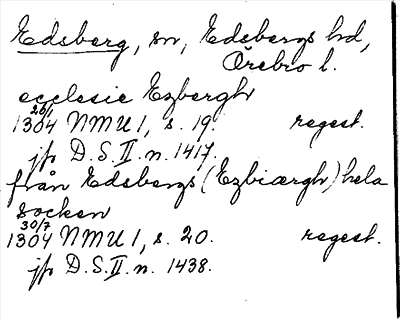 Edsberg, sn, Edsbergs hd,
Örebro l.
ecclesie Ezbergh
20/1
1304 NMU 1, s. 19. regest.
jfr D.S. II. n. 1417.
från Edsbergs (Ezbiærgh) hela
socken
30/7
1304 NMU 1, s. 20. regest.
jfr D.S. II. n. 1438.